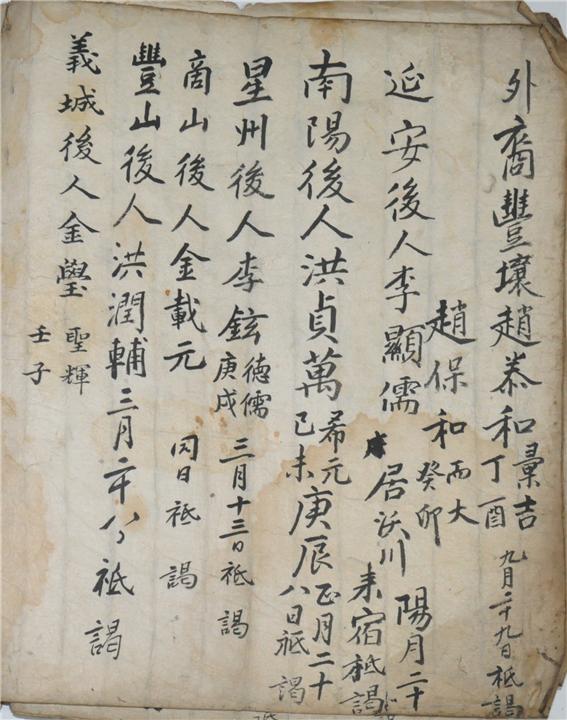 外裔豐壤趙泰和彙吉丁酉九月二十九日祗謁
趙保和丙大癸卯
延安後人李顯儒居沃川陽月二十來宿祗謁
南陽後人洪貞萬希元己未庚辰正月二十八日祗謁
星州後人李鉉德儒庚戌三月十三日祗謁
商山後人金載元同日祗謁
豐山後人洪潤輔三月二十八祗謁
義城後人金瑩聖輝壬子